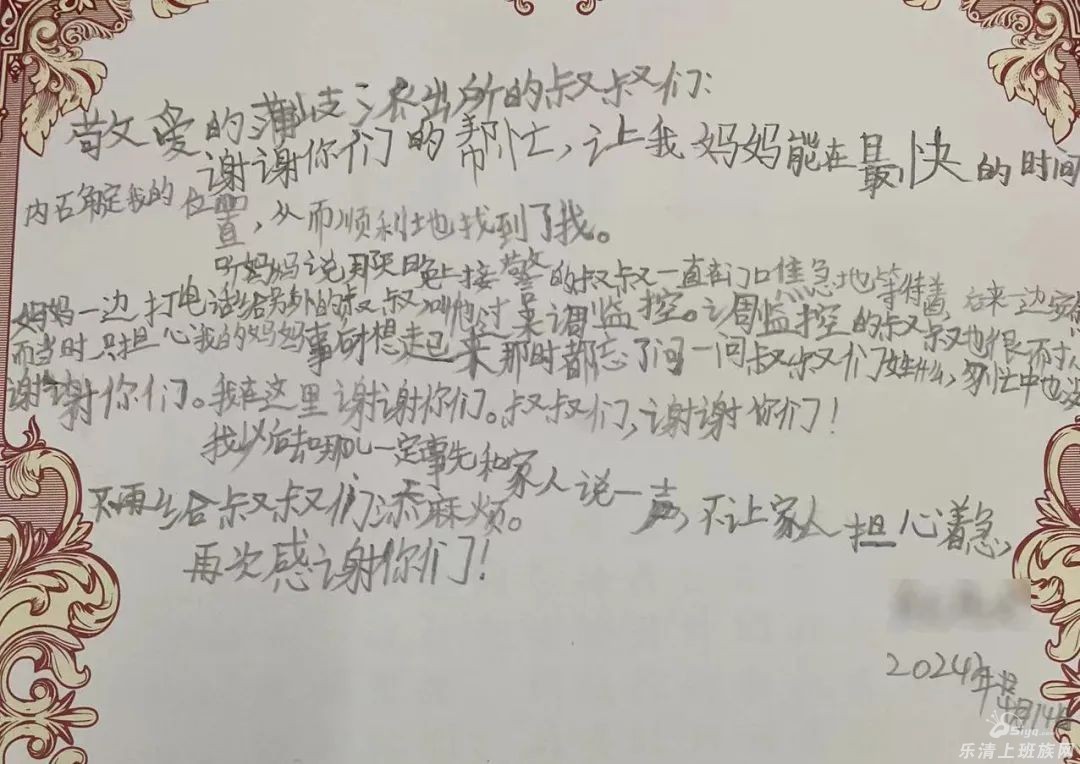 敬爱的蒲岐派出所的叔叔们:
谢谢你们的帮忙,让我妈妈能在最快的时间
内确定我的位置,从而顺利地找到了我。
听妈妈说那天晚上接警的叔叔一直在门口焦急地等待着
妈妈一边打电话给另外的叔叔叫他过来调监控。调监控的叔叔也很耐
而当时只担心我的妈妈事后想起来那时都忘了问一问叔叔们姓什么,匆忙中也没
谢谢你们。我在这里谢谢你们。叔叔们,谢谢你们!
我以后去哪儿一定事先和家人说一声,不让家人担心着急,
不再给叔叔们添麻烦。
再次感谢你们!
2024年4月14日
乐清上班族网